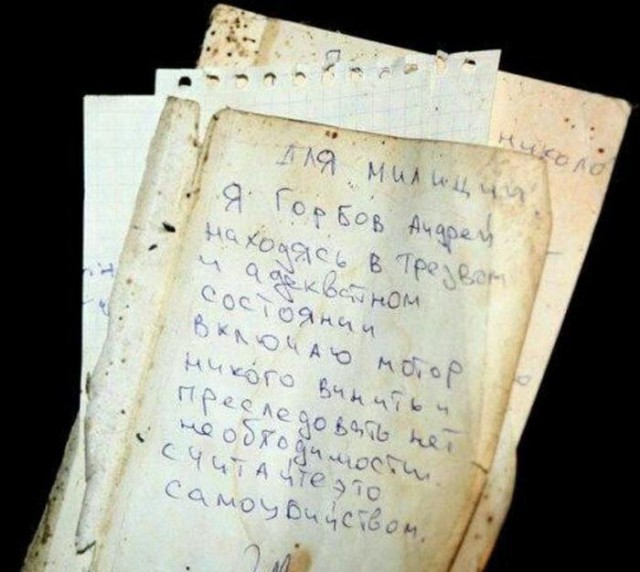 николо
ДЛЯ МИЛИЦИИ.
Я ГОРБОВ АНДРЕЙ
находясь в трезвом
и адекватном
состоянии
включаю мотор
никого винить и
преследовать нет
необходимости.
считайте это
самоубийством.